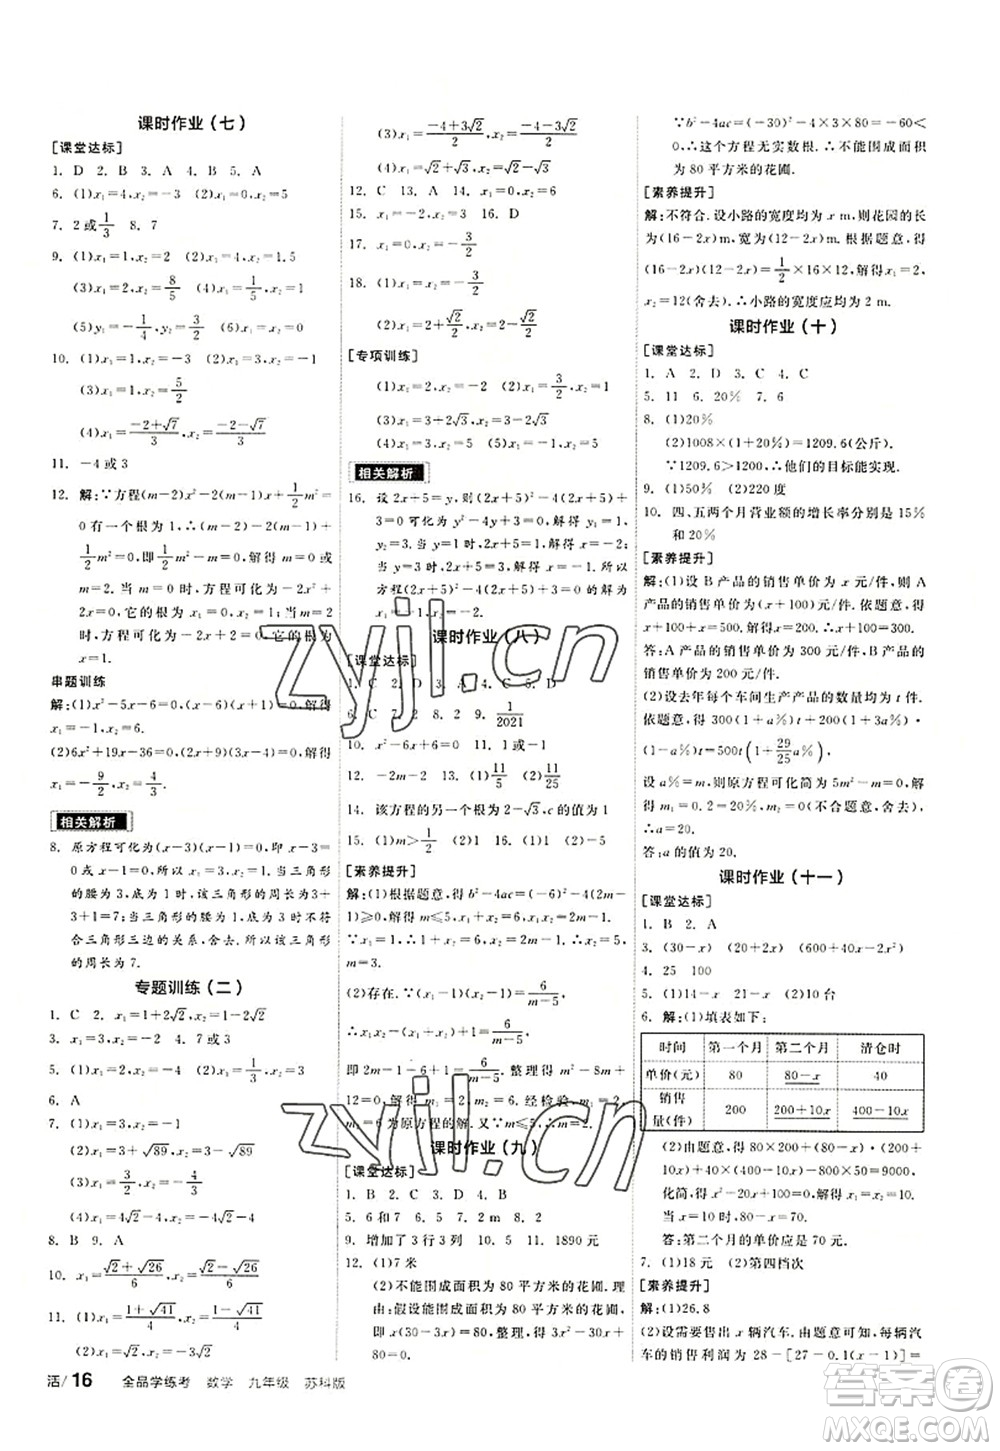 课时作业（七）
[课堂达标]
1. D  2. B  3. A  4. A  5. A
6. (1)x₁=4,x₂=-3  (2)x₁=0,x₂=5
7. 2或1/3  8. 7
9. (1)x₁=1,x₂=7  (2)x₁=2,x₂=1.5
(3)x₁=2,x₂=8/5  (4)x₁=1/5,x₂=1
(5)y₁=-1/4,y₂=3/4  (6)x₁=0,x₂=2
10. (1)x₁=1,x₂=-3  (2)x₁=1,x₂=-1
(3)x₁=-1,x₂=5/2
(4)x₁=(-2+√7)/3,x₂=(-2-√7)/3
11. -4或3
12. 解:∵方程(m-2)x²-(m-2)x+1/2m²=
0有一个根为1,∴(m-2)-(m-2)+
1/2m²=0,即1/2m²=0,解得m=0.
当m=0时,原方程可化为-2x²+
2x=0,它的根为x₁=0,x₂=1.
∴方程为-2x+2=0,它的根为
x=1.
串题训练
解:(1)x²-5x-6=0,(x-6)(x+1)=0,
x₁=-1,x₂=6.
(2)6x²+19x-36=0,(2x+9)(3x-4)=0,
x₁=-9/2,x₂=4/3.
相关解析
8. 原方程可化为(x-3)(x-1)=0,即x-3=
0或x-1=0,解得x₁=3,x₂=1.当三角形
的腰为3,底为1时,该三角形的周长为3+
3+1=7;当三角形的腰为1,底为3时不符
合三角形三边的关系,舍去.所以该三角形
的周长为7.
专题训练（二）
1. C  2. x₁=-1+2√2,x₂=-1-2√2
3. x₁=3,x₂=-2  4. 7或-3
5. (1)x₁=0,x₂=-1  (2)x₁=1/3,x₂=3
6. A
7. (1)x₁=-9+√89,x₂=-9-√89
(2)x₁=-1,x₂=-7/3
(3)x₁=4√2-4,x₂=-4√2-4
8. B  9. A
10. x₁=(√2+√26)/6,x₂=(√2-√26)/6
11. (1)x₁=(1+√41)/4,x₂=(1-√41)/4
(2)x₁=x₂=√2/2
(3)x₁=(-4+3√2)/2,x₂=(-4-3√2)/2
(4)x₁=√3+√6,x₂=√3-√6
12. C  13. A  14. x₁=0,x₂=6
15. x₁=4,x₂=-1  16. D
17. x₁=0,x₂=-3/2
18. (1)x₁=0,x₂=1
(2)x₁=2+√2/2,x₂=2-√2/2
[专项训练]
(1)x₁=2,x₂=-2  (2)x₁=3/2,x₂=1
(3)x₁=3+2√3,x₂=3-2√3
(4)x₁=5,x₂=1
相关解析
16. 设2x+5=y,则(2x+5)²-4(2x+5)+3
=0可化为y²-4y+3=0,解得y₁=1,
y₂=3.当y=1时,2x+5=1,解得x=-2;
当y=3时,2x+5=3,解得x=-1.所以
方程(2x+5)²-4(2x+5)+3=0的解为
x₁=-1,x₂=-2.
课时作业（八）
[课堂达标]
1. C  2. D  3. A  4. C  5. D
6. C  7. 2  8. 2  9. 1/2021
10. x²-x-6=0  11. 1或-1
12. -2m-2  13. (1)11/5  (2)11/25
14. 该方程的另一个根为2-√3,c的值为1
15. (1)m>1/2  (2)1  (3)1
[素养提升]
解:(1)根据题意,得b²-4ac=(-6)²-4(2m+
1)≥0,解得m≤4.
(2)存在.∵(x₁-1)(x₂-1)=6/(m-5),
∴x₁x₂-(x₁+x₂)+1=6/(m-5),
即2m+1-6+1=6/(m-5),整理,得m²-8m+
12=0,解得m₁=2,m₂=6.经检验,m₁=2,m₂
=6为原方程的解.又∵m≤4,∴m=2.
课时作业（九）
[课堂达标]
1. B  2. C  3. D  4. D
5. 6和7  6. 9  7. 2 m  8. 2
9. 增加了3行3列  10. 5  11. 1890元
12. (1)7米
(2)不能围成面积为80平方米的花圃.理
由:假设能围成面积为80平方米的花圃,
则x(30-3x)=80,整理,得3x²-30x+80=0.
∵b²-4ac=(-30)²-4×3×80=-60<
0,∴这个方程无实数根.∴不能围成面积
为80平方米的花圃.
[素养提升]
解:不符合.设小路的宽度均为x m,则花园的长
为(16-2x)m,宽为(12-2x)m.根据题意,得
(16-2x)(12-2x)=1/2×16×12,解得x₁=2,
x₂=12(舍去).∴小路的宽度应均为2 m.
课时作业（十）
[课堂达标]
1. A  2. D  3. C  4. C
5. 11  6. 20%  7. 6
8. (1)20%
(2)1008×(1+20%)=1209.6(公斤).
∵1209.6>1200,∴他们的目标能实现.
9. (1)50%  (2)220度
10. 四、五两个月营业额的增长率分别是15%
和20%
[素养提升]
解:(1)设B产品的销售单价为x元/件,则A
产品的销售单价为(x+100)元/件.依题意,得
x+100+x=500,解得x=200,∴x+100=300.
答:A产品的销售单价为300元/件,B产品的
销售单价为200元/件.
(2)设去年每个车间生产产品的数量均为t件.
依题意,得300(1+a%)t+200(1+3a%)
(1-a%)t=500t(1+29/25a%),
设a%=m,则原方程可化简为5m²-m=0,
解得m₁=0.2,m₂=0(不合题意,舍去),
∴a=20.
答:a的值为20.
课时作业（十一）
[课堂达标]
1. B  2. A
3. (30-x)  (20+2x)  (600+40x-2x²)
4. 25  100
5. (1)14-x  21-x  (2)10台
6. 解:(1)填表如下:
时间 第一个月 第二个月 清仓时
单价(元) 80 80-x 40
销售量(件) 200 200+10x 400-10x
(2)由题意,得80×200+(80-x)·
(200+10x)+40(400-10x)-50×800=9000,
化简,得x²-20x+100=0,解得x₁=x₂=10.
当x=10时,80-x=70.
答:第二个月的单价应是70元.
7. (1)18元  (2)第四档次
[素养提升]
解:(1)26.8
(2)设需要售出x辆汽车,由题意可知,每辆汽车
的销售利润为28-[27-0.1(x-1)]=
活/16  全品学练考  数学  九年级  苏科版
zyjl.cn
zyjl.cn
答案圈
MXQE.COM